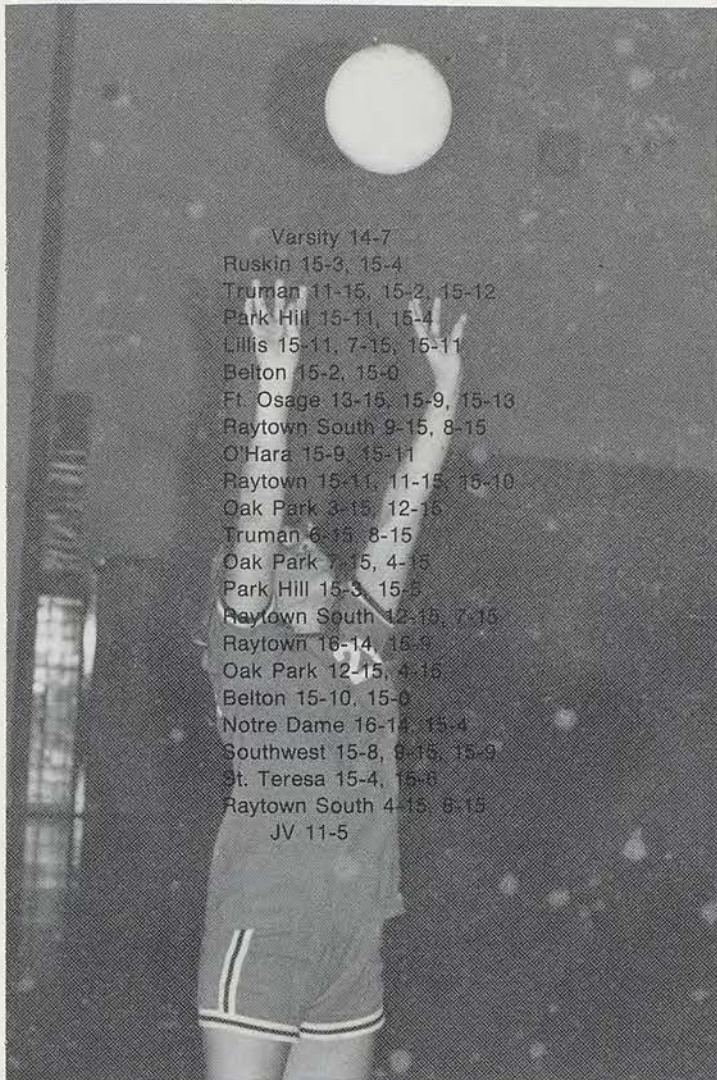 Varsity 14-7
Ruskin 15-3, 15-4
Truman 11-15, 15-2, 15-12
Park Hill 15-11, 15-4
Lillis 15-11, 7-15, 15-11
Belton 15-2, 15-0
Ft. Osage 13-15, 15-9, 15-13
Raytown South 9-15, 8-15
O'Hara 15-9, 15-11
Raytown 15-11, 11-15, 15-10
Oak Park 3-15, 12-15
Truman 6-15, 8-15
Oak Park 7-15, 4-15
Park Hill 15-3, 15-5
Raytown South 12-15, 7-15
Raytown 16-14, 15-9
Oak Park 12-15, 4-15
Belton 15-10, 15-0
Notre Dame 16-14, 15-4
Southwest 15-8, 9-15, 15-9
St. Teresa 15-4, 15-6
Raytown South 4-15, 6-15
JV 11-5